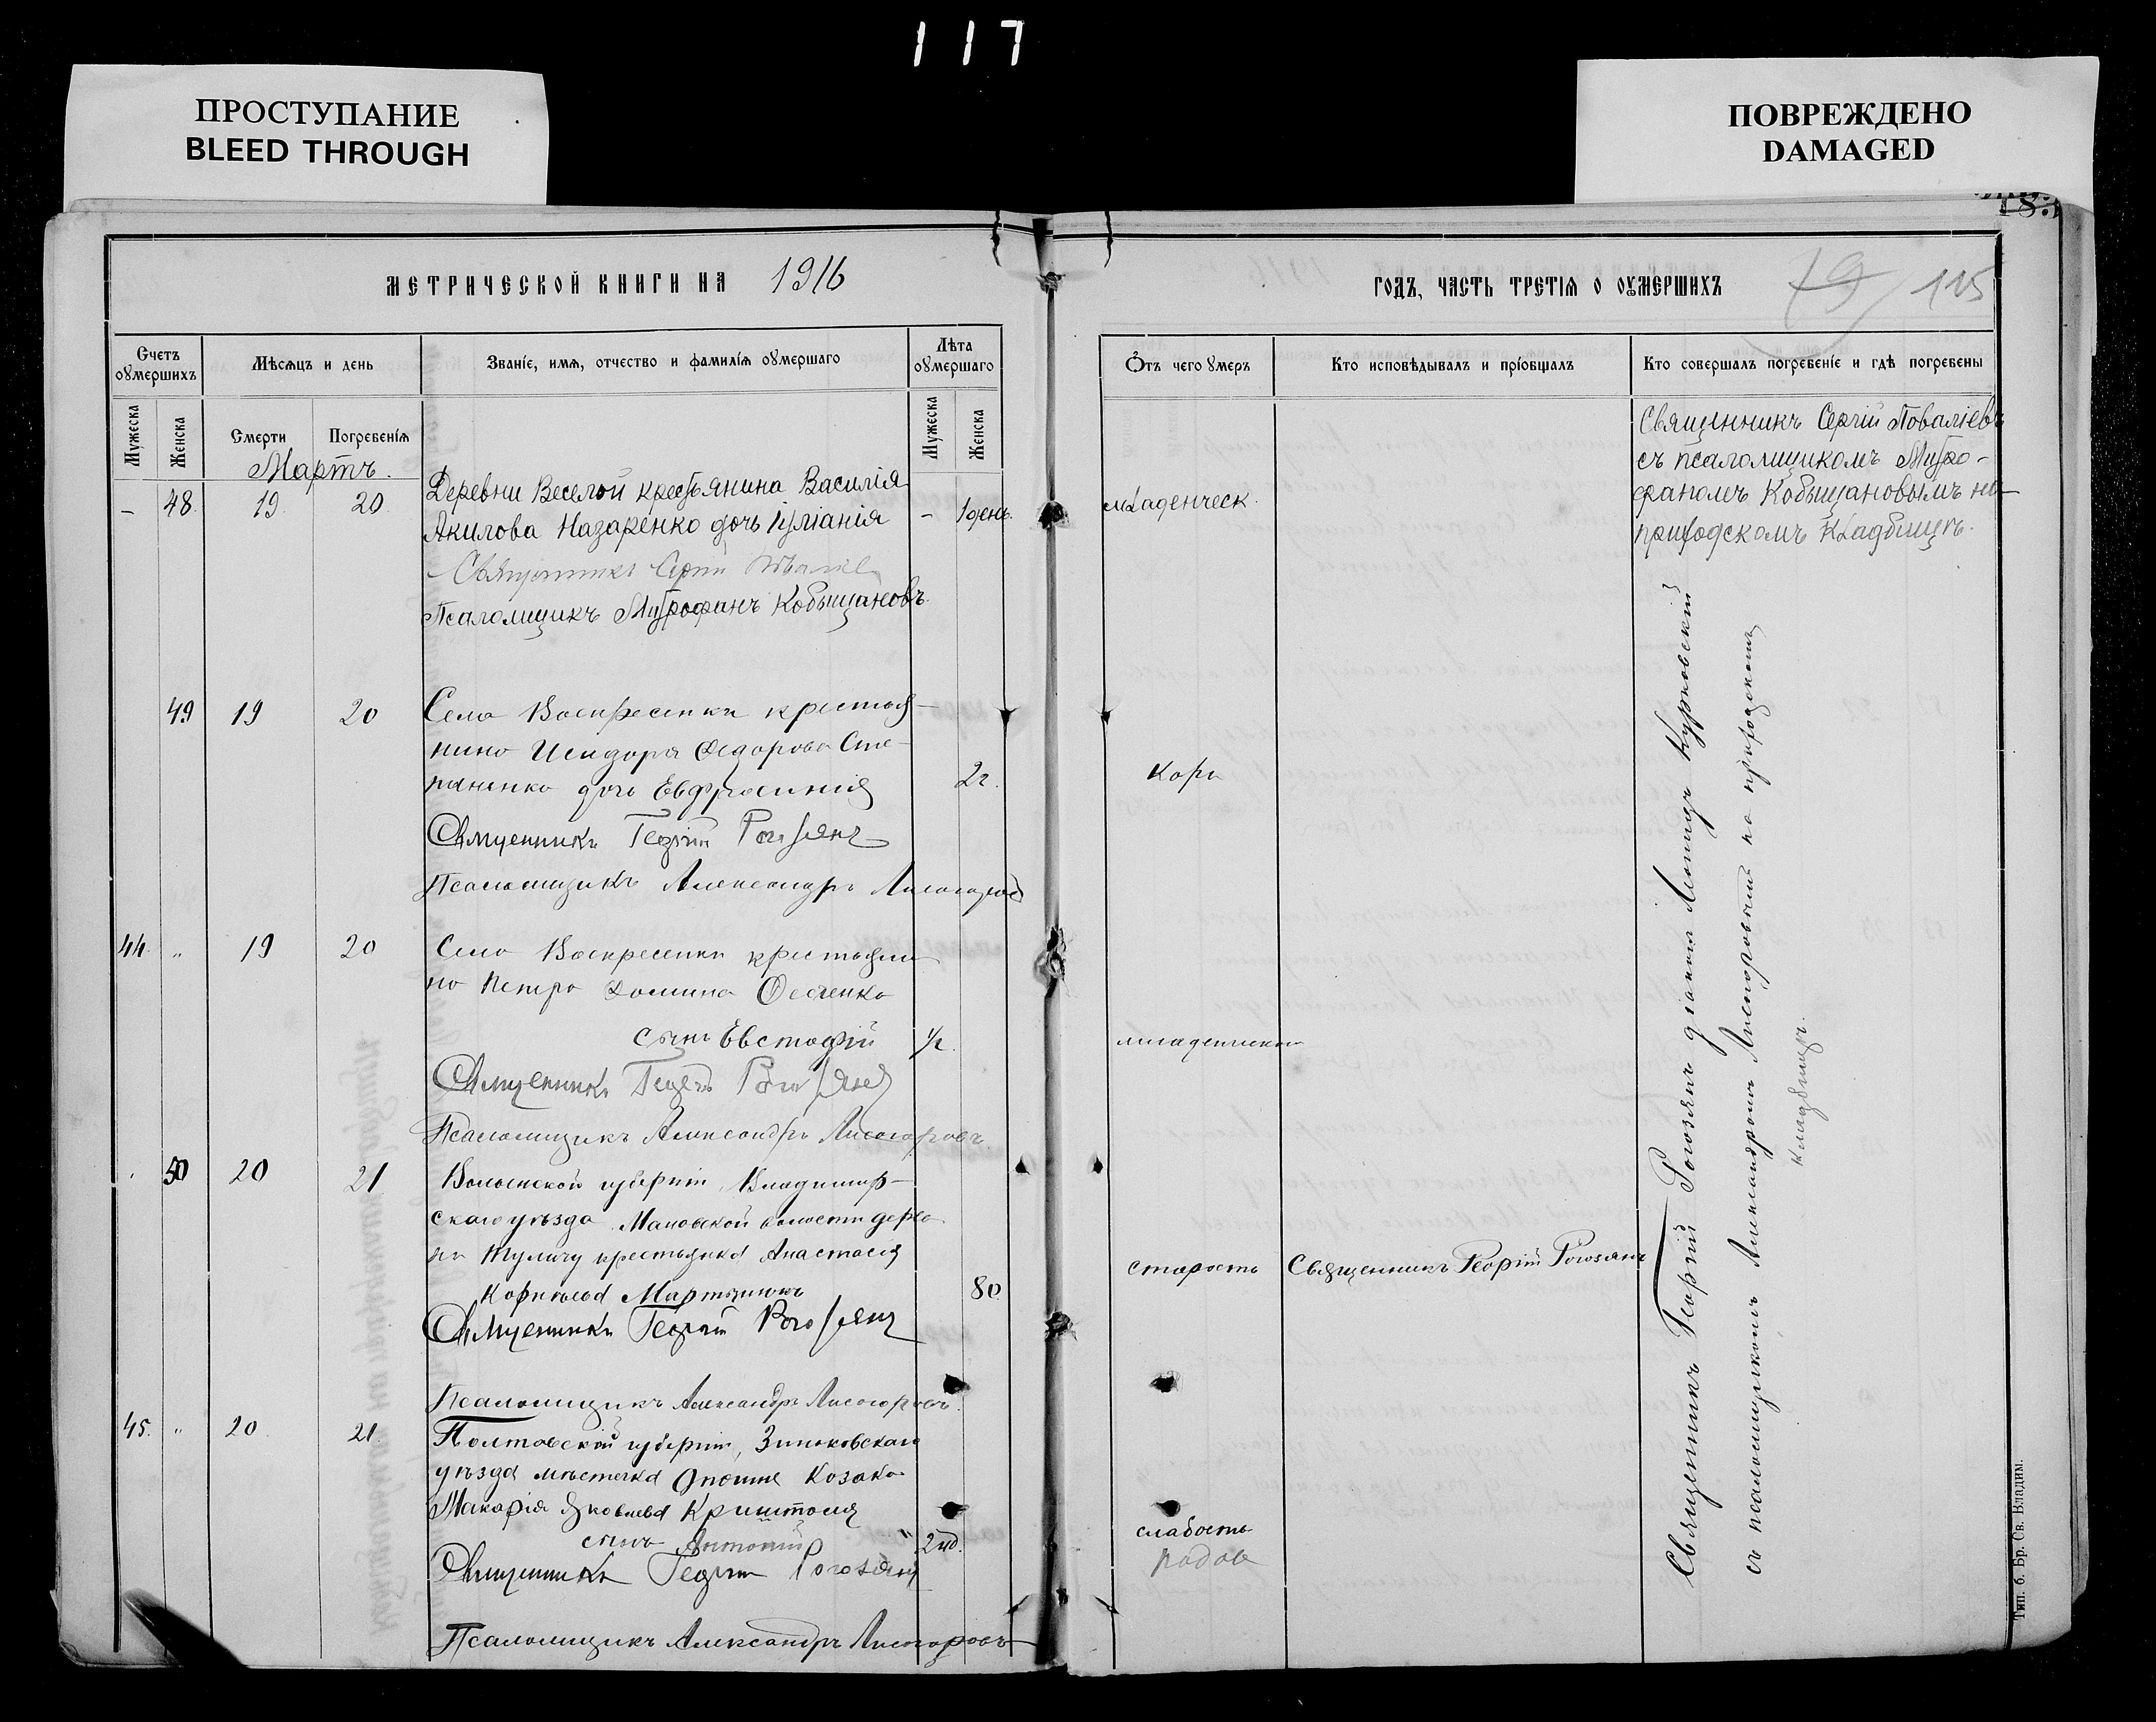 117
ПРОСТУПАНИЕ
BLEED THROUGH
ПОВРЕЖДЕНО
DAMAGED
МЕТРИЧЕСКОЙ КНИГИ НА 1916
Счетъ оумершихъ
Мѣсяцъ и день
Званіе, имя, отчество и фамилія оумершаго
Лѣта оумершаго
Мужеска
Женска
Смерти
Погребенія
Мужеска
Женска
Мартъ.
– 48 19 20
Деревни Веселой крестьянина Василія
Акилова Назаренко дочь Іуліанія
– 1 день.
Священникъ Сергій
Псаломщикъ Митрофанъ Кобыщановъ.
49 19 20
Села Воскресенки крестья-
нина Исидора Федорова Сте-
паненко дочь Евфросинія
2 г.
Священникъ Георгій Рогозянъ
Псаломщикъ Александръ Лисогоровъ
44. " 19 20
Села Воскресенки крестьяни-
на Петра Фесенко
сынъ Евстафій
1/2.
Священникъ Георгій Рогозянъ
Псаломщикъ Александръ Лисогоровъ
50 20 21
Волынской губерніи, Владимір-
скаго уѣзда волости дерев-
ни крестьянка Анастасія
80
Священникъ Георгій Рогозянъ
Псаломщикъ Александръ Лисогоровъ.
45. " 20 21
Полтавской губерніи, Зиньковскаго
уѣзда мѣстечка Опошне Козака
Макарія Яковлева
сынъ Антоній
" 2 нд.
Священникъ Георгій Рогозянъ
Псаломщикъ Александръ Лисогоровъ
ГОДЪ, ЧАСТЬ ТРЕТІЯ О ОУМЕРШИХЪ
79 115
Отъ чего умеръ
Кто исповѣдывалъ и пріобщалъ
Кто совершалъ погребеніе и гдѣ погребены
младенческ.
Священникъ Сергій Поваліевъ
съ псаломщикомъ Митро-
фаномъ Кобыщановымъ на
приходскомъ кладбищѣ.
Корь
младенческ
старость
Священникъ Георгій Рогозянъ
слабость
родов
Священникъ Георгій Рогозянъ діаконъ Леонидъ Курковскій
съ псаломщикомъ Александромъ Лисогоровымъ на приходскомъ
кладбищѣ.
Тип. б. Бр. Св. Владим.